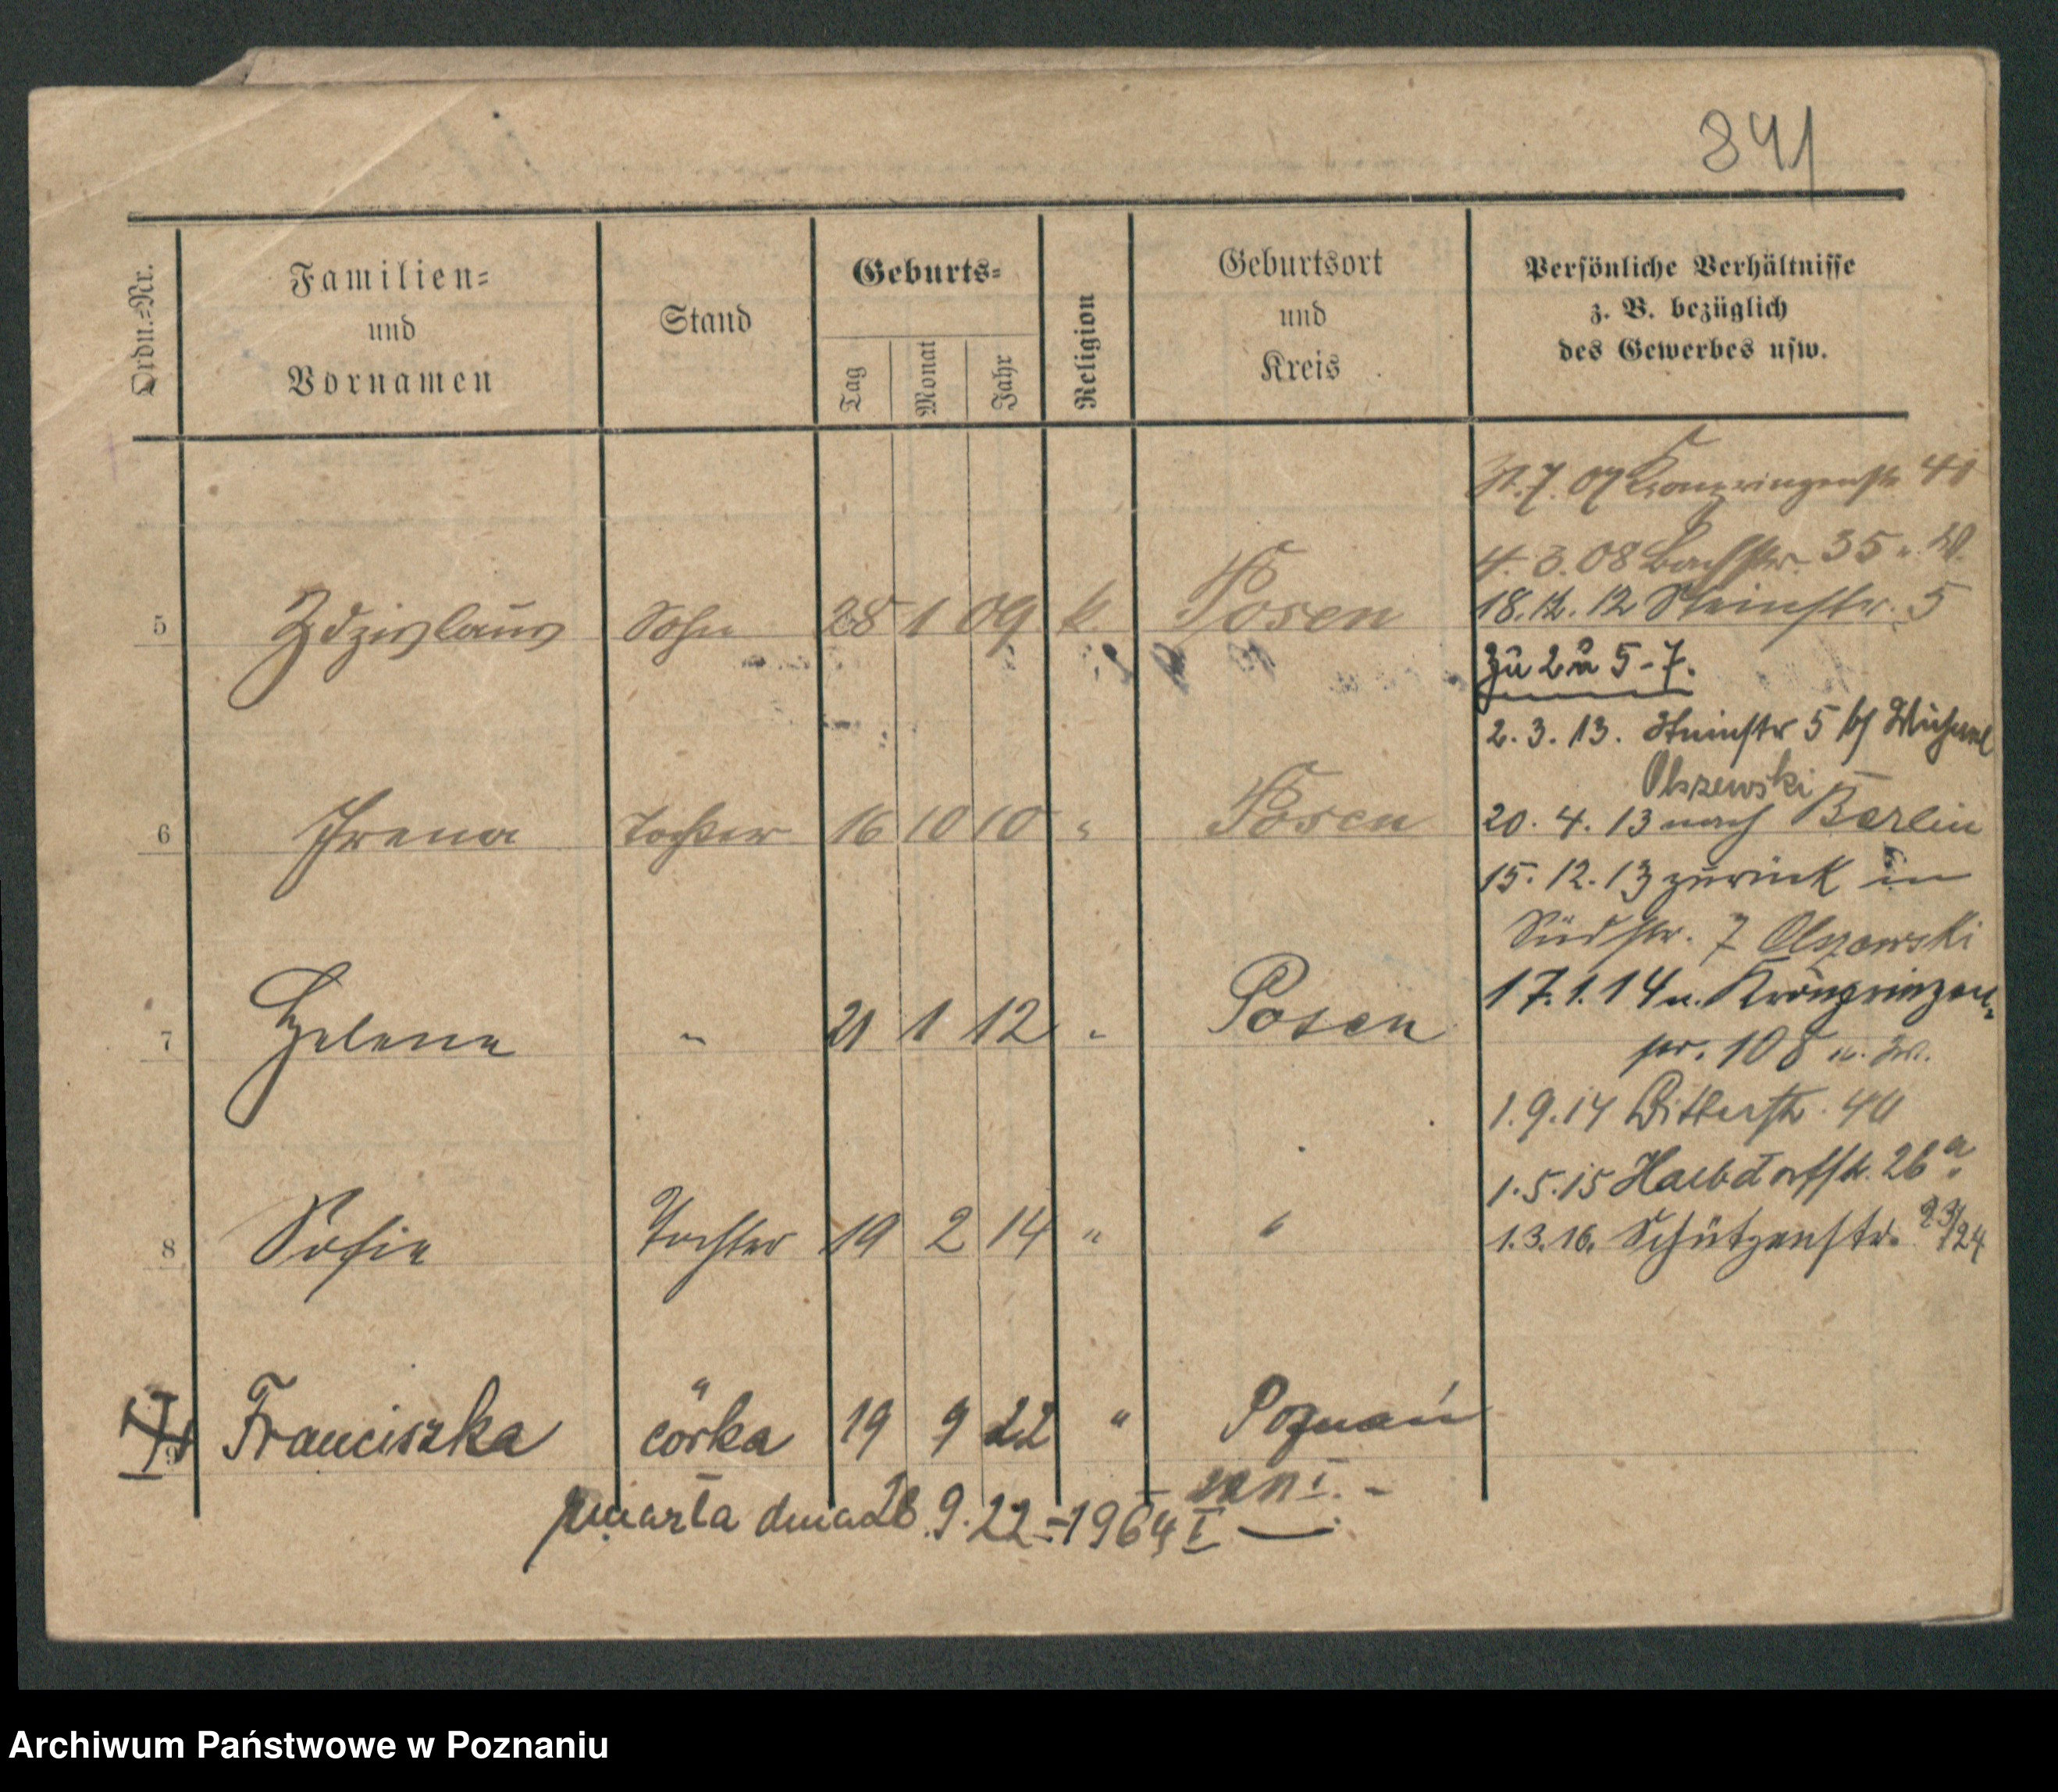 841
Ordn.=Nr.
Familien=
und
Vornamen
Stand
Geburts=
Tag
Monat
Jahr
Religion
Geburtsort
und
Kreis
Persönliche Verhältnisse
z. B. bezüglich
des Gewerbes usw.
31.7.07 Kronprinzenstr 41
4.3.08 Bachstr. 35 u. W.
18.12.12 Steinstr. 5
5 Zdzislaus Sohn 28 1 09 k. Posen
zu 2 u 5-7.
2.3.13. Steinstr 5 b/
Olszewski
6 Irena Tochter 16 10 10 " Posen
20.4.13 nach Berlin
15.12.13 zurück in
Südstr. 7 Olszewski
17.1.14 n. Kronprinzen-
7 Helene " 21 1 12 " Posen
str. 108 u. W.
1.9.14 Bitterstr. 40
1.5.15 Halbdorfstr. 26a.
8 Sofie Tochter 19 2 14 " "
1.3.16. Schützenstr. 23/24
9 Franciszka córka 19 9 22 " Poznań
zmarła dnia 28.9.22 = 1964 I